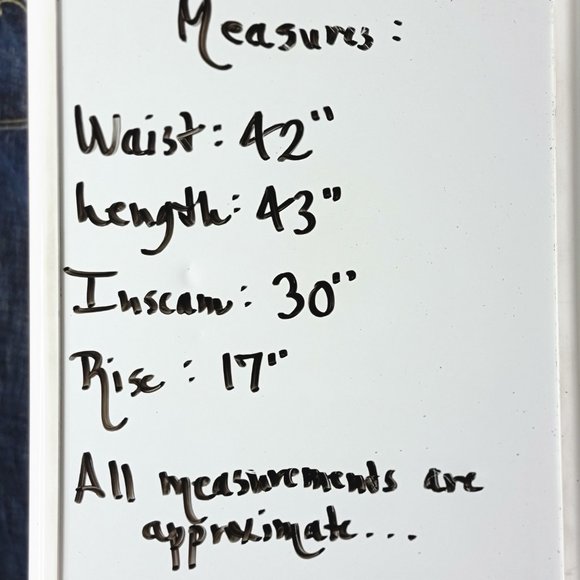 Measures:
Waist: 42"
Length: 43"
Inseam: 30"
Rise: 17"
All measurements are
approximate...